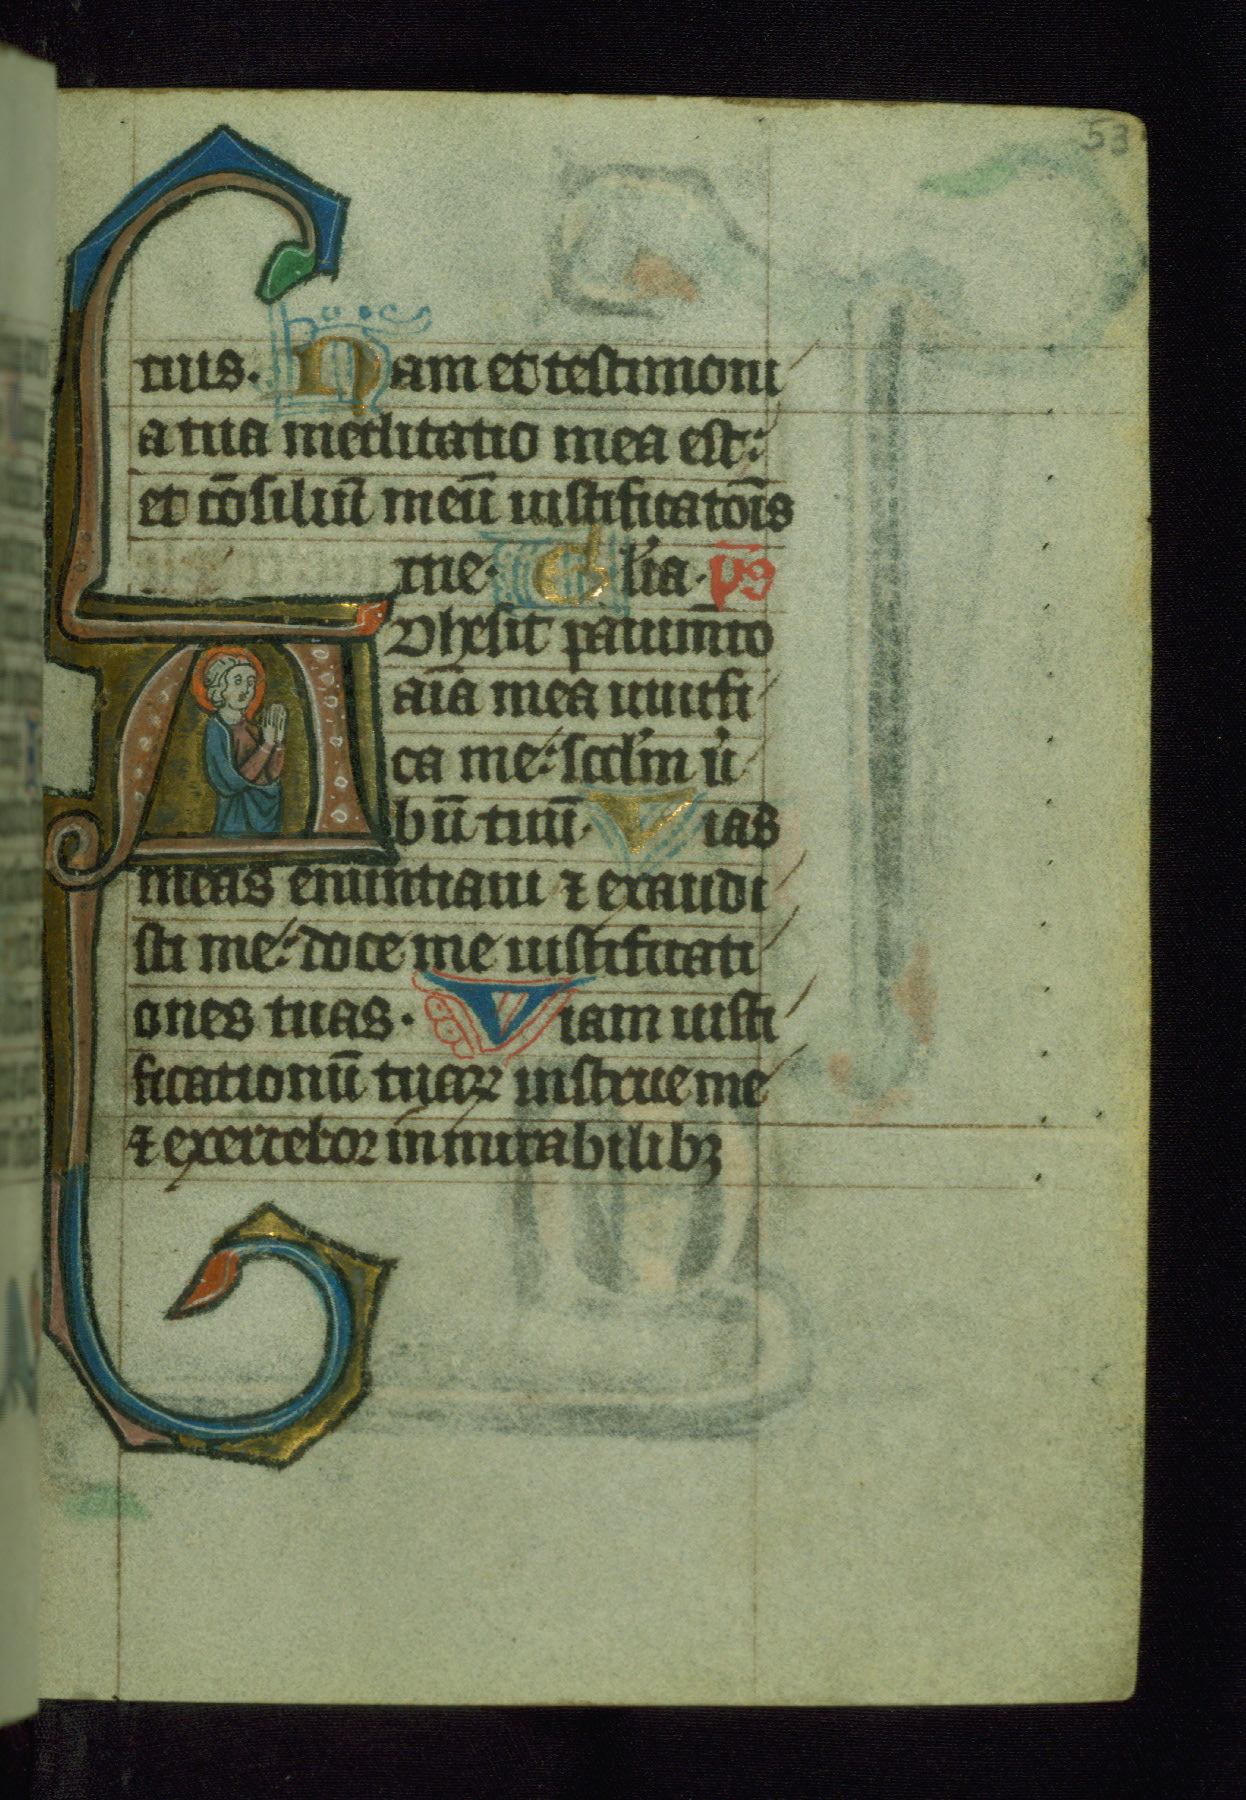 53
tuis. Nam et testimoni
a tua meditatio mea est:
et cōsiliū meū iustificatōīs
tue. Glīa. ps
Adhesit pauimēto
aīa mea uiuifi
ca me: scdm̄ ū
bū tuū. Vias
meas enuntiaui ⁊ exaudi
sti me: doce me iustificati
ones tuas. Viam iusti
ficationū tuaꝝ instrue me
⁊ exercebor in mirabilibꝫ